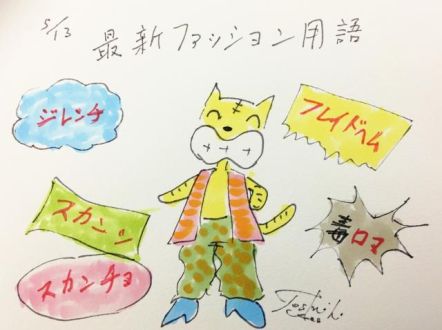 5/13
最新ファッション用語
ジレンチ
フレイドヘム
スカンツ
毒ロマ
スカンチョ